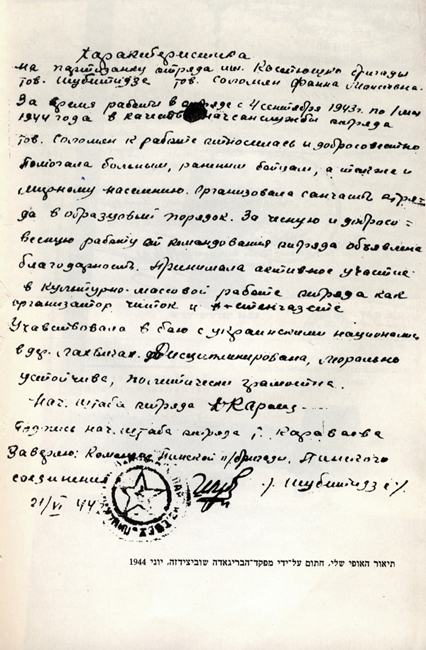 Характеристика
на партизанку отряда им. Костюшко бригады
тов. Шубитидзе тов. Соломян Фаина
За время работы в отряде с 4 сентября 1943 г. по 1
1944 года в качестве начсанслужбы отряда
тов. Соломян к работе относилась и добросовестно
помогала больным, раненим бойцам, а также и
мирному населению. Организовала санчасть отря
да в образцовый порядок. За чесную и добросо =
весную работу от командования отряда объявлена
благодарность. Принимала активное участие
в культурно-массовой работе отряда как
организатор читок и стенгазете
Учавствовала в бою с украинскими националис
в дер. Дисциплинирована, морально
устойчива, политически грамотна.
Нач. штаба отряда
Подпись нач. штаба отряда г. Караваева
Заверяю: Командир Пинской п/бригады, Пинского
соединения /. Шубитидзе /.
21/VI 44
תיאור האופי שלי, חתום על־ידי מפקד־הבריגאדה שוביצידזה, יוני 1944